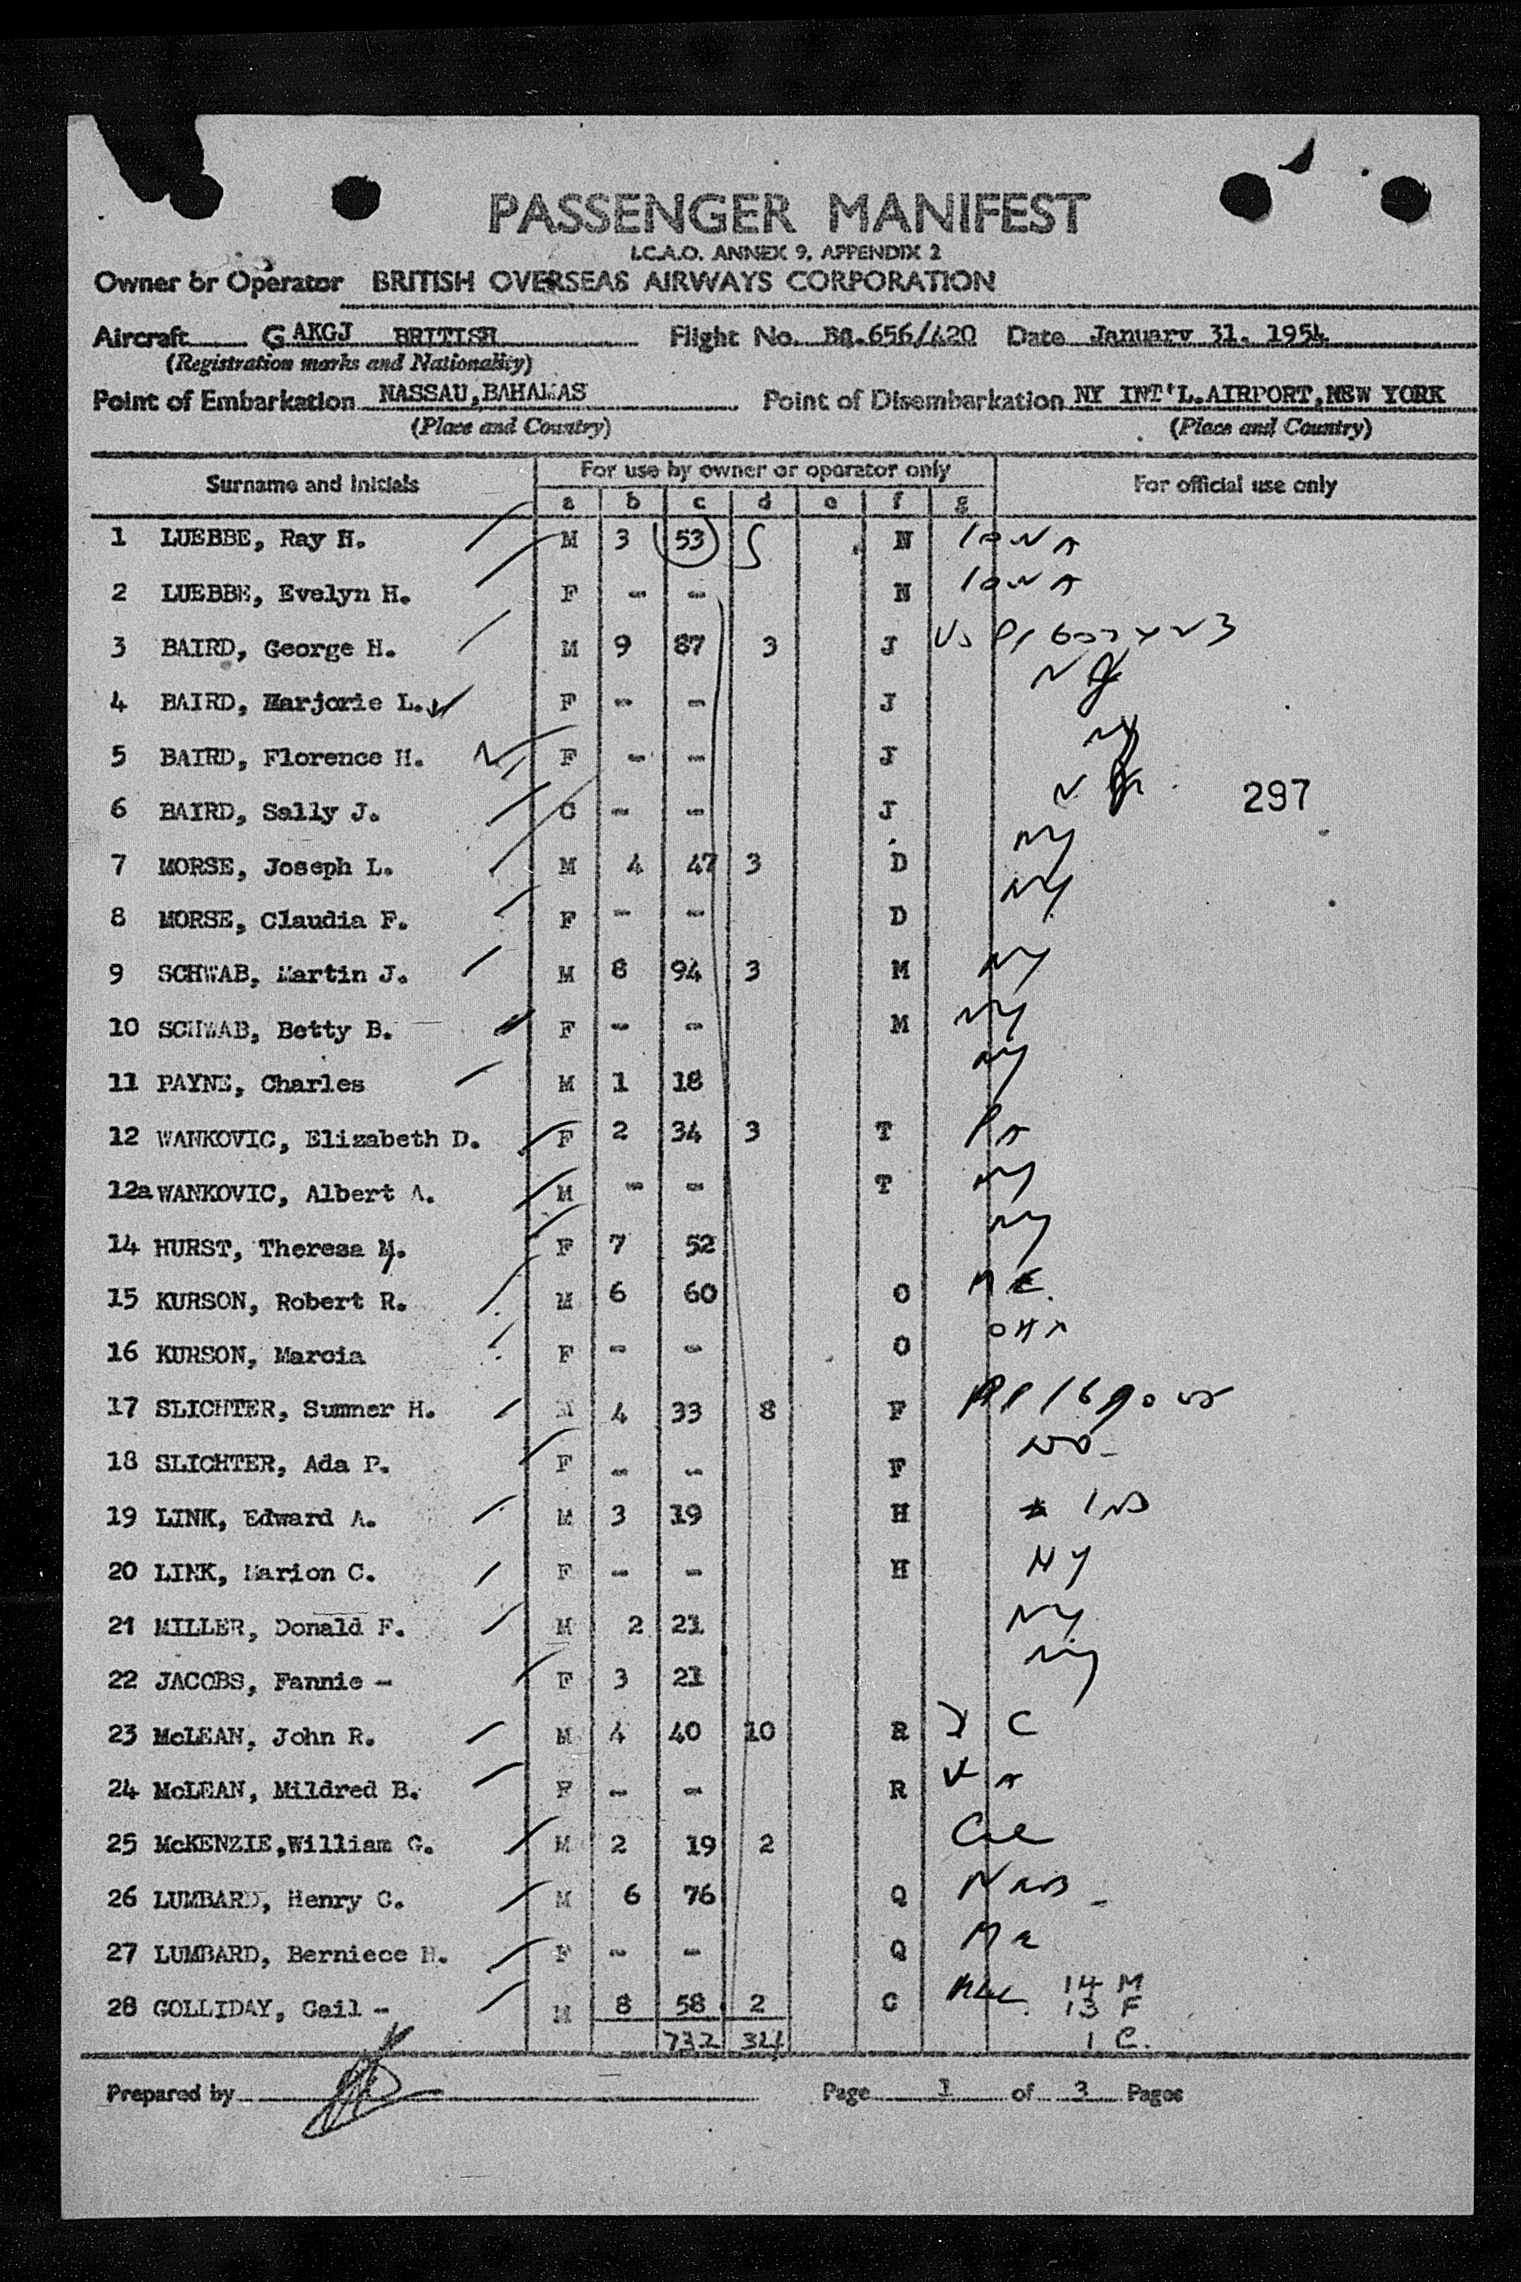 PASSENGER MANIFEST
I.C.A.O. ANNEX 9, APPENDIX 2
Owner or Operator BRITISH OVERSEAS AIRWAYS CORPORATION
Aircraft G AKGJ BRITISH Flight No. BA.656/420 Date January 31. 1954
(Registration marks and Nationality)
Point of Embarkation NASSAU,BAHAMAS Point of Disembarkation NY INT'L.AIRPORT,NEW YORK
(Place and Country) (Place and Country)
Surname and Initials For use by owner or operator only For official use only
a b c d e f g
1 LUEBBE, Ray H. M 3 53 N Iowa
2 LUEBBE, Evelyn H. F - - N Iowa
3 BAIRD, George H. M 9 87 3 J US
4 BAIRD, Marjorie L. F - - J
5 BAIRD, Florence H. F - - J NY
6 BAIRD, Sally J. C - - J
297
7 MORSE, Joseph L. M 4 47 3 D NY
8 MORSE, Claudia F. F - - D NY
9 SCHWAB, Martin J. M 8 94 3 M NY
10 SCHWAB, Betty B. F - - M NY
11 PAYNE, Charles M 1 18 NY
12 WANKOVIC, Elizabeth D. F 2 34 3 T Pa
12a WANKOVIC, Albert A. M - - T NY
14 HURST, Theresa M. F 7 52 NY
15 KURSON, Robert R. M 6 60 O ME.
16 KURSON, Marcia F - - O
17 SLICHTER, Sumner H. M 4 33 8 F
18 SLICHTER, Ada P. F - - F
19 LINK, Edward A. M 3 19 H IND
20 LINK, Marion C. F - - H NY
21 MILLER, Donald F. M 2 21 NY
22 JACOBS, Fannie - F 3 21 NY
23 McLEAN, John R. M 4 40 10 R D C
24 McLEAN, Mildred B. F - - R VA
25 McKENZIE,William G. M 2 19 2
26 LUMBARD, Henry C. M 6 76 Q
27 LUMBARD, Berniece H. F - - Q
28 GOLLIDAY, Gail - M 8 58 2 C 14 M
13 F
732 34 1 C.
Prepared by Page 1 of 3 Pages